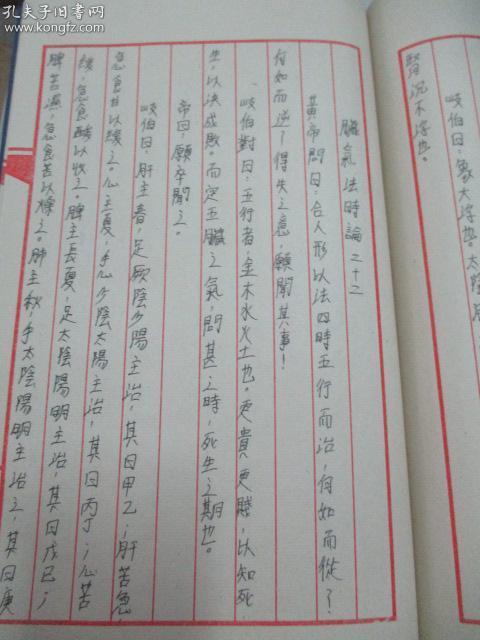 孔夫子旧书网
www.kongfz.com
岐伯曰，象大浮也。太陰
腎沉不浮也。
臟氣法時論二十二
黃帝問曰，合人形以法四時五行而治，何如而從？
何如而逆？得失之意，願聞其事！
岐伯對曰，五行者，金木水火土也。更貴更賤，以知死
生，以決成敗。而定五臟之氣，間甚之時，死生之期也。
帝曰，願卒聞之。
岐伯曰，肝主春，足厥陰少陽主治，其日甲乙；肝苦急
急食甘以緩之。心主夏，手少陰太陽主治，其日丙丁；心苦
緩，急食酸以收之。脾主長夏，足太陰陽明主治，其日戊己；
脾苦濕，急食苦以燥之。肺主秋，手太陰陽明主治之，其日庚